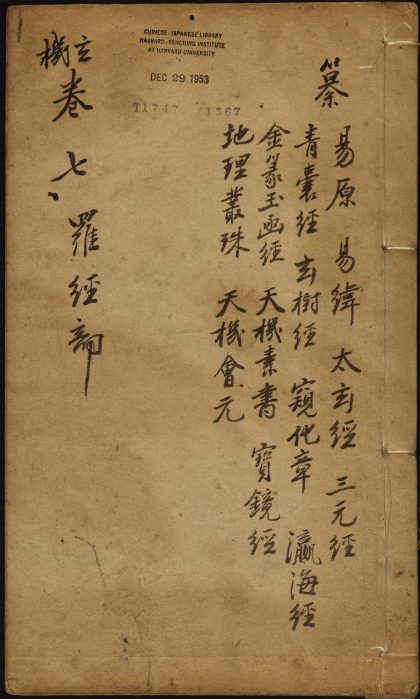 CHINESE-JAPANESE LIBRARY
HARVARD-YENCHING INSTITUTE
AT HARVARD UNIVERSITY
DEC 29 1953
T1747 /1367
纂 易原 易緯 太玄經 三元經
青囊經 玄樹經 窺化章 瀛海經
金篆玉函經 天機素書 寶鏡經
地理叢珠 天機會元
玄機 卷七 羅經部